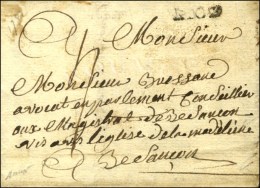 Monsieur
Monsieur
avocat en parlement Conseillier
aux Magistrat de Besancon
vis a vis leglise de la madeleine
Besançon